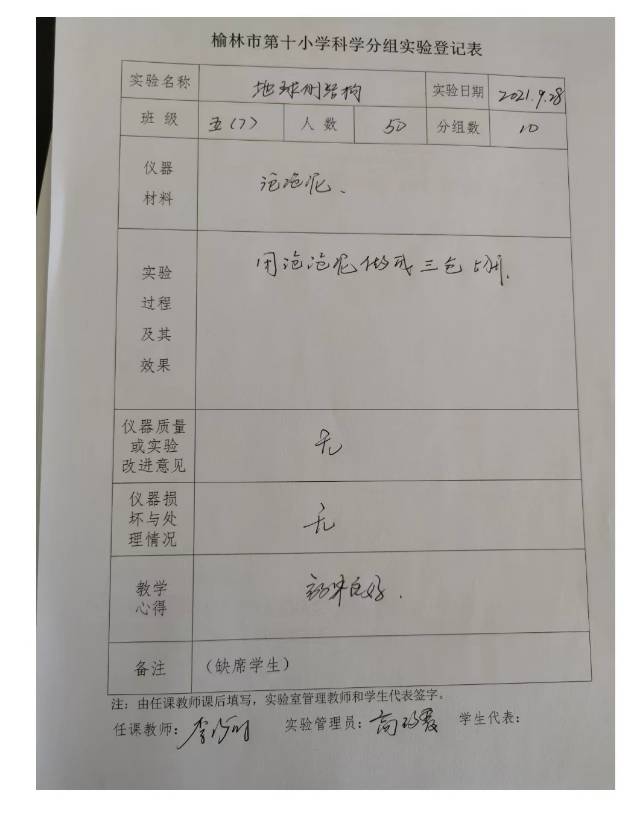 榆林市第十小学科学分组实验登记表
实验名称 地球的结构 实验日期 2021.9.28
班 级 五(7) 人 数 50 分组数 10
仪器
材料
泡泡泥、
实验
过程
及其
效果
用泡泡泥做成三色
仪器质量
或实验
改进意见
无
仪器损
坏与处
理情况
无
教学
心得
效果良好.
备注 (缺席学生)
注: 由任课教师课后填写, 实验室管理教师和学生代表签字。
任课教师: 李 实验管理员: 高 学生代表: